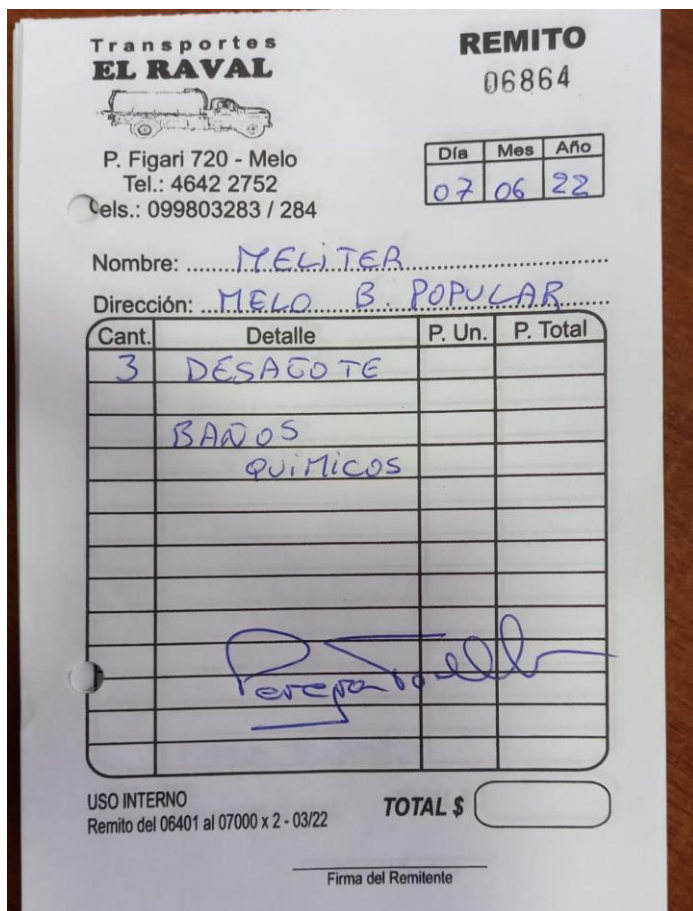 Transportes
EL RAVAL
P. Figari 720 - Melo
Tel.: 4642 2752
Cels.: 099803283 / 284
REMITO
06864
Día Mes Año
07 06 22
Nombre: MELITER
Dirección: MELO B. POPULAR
Cant. Detalle P. Un. P. Total
3 DESAGOTE
BAÑOS
QUIMICOS
USO INTERNO
Remito del 06401 al 07000 x 2 - 03/22
TOTAL $
Firma del Remitente